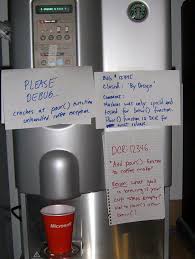 PLEASE
DEBUG...
crashes at pour() function
unhandled coffee exception
Bug # 12345
Closed: "By Design"
Comments:
Machine was only specced and
tested for brew() function.
Pour() function is DCR for
next release.
DCR 12346
"Add pour() function
to coffee maker"
Reason: what good
is brewing if your
cup stays empty?
Microsoft